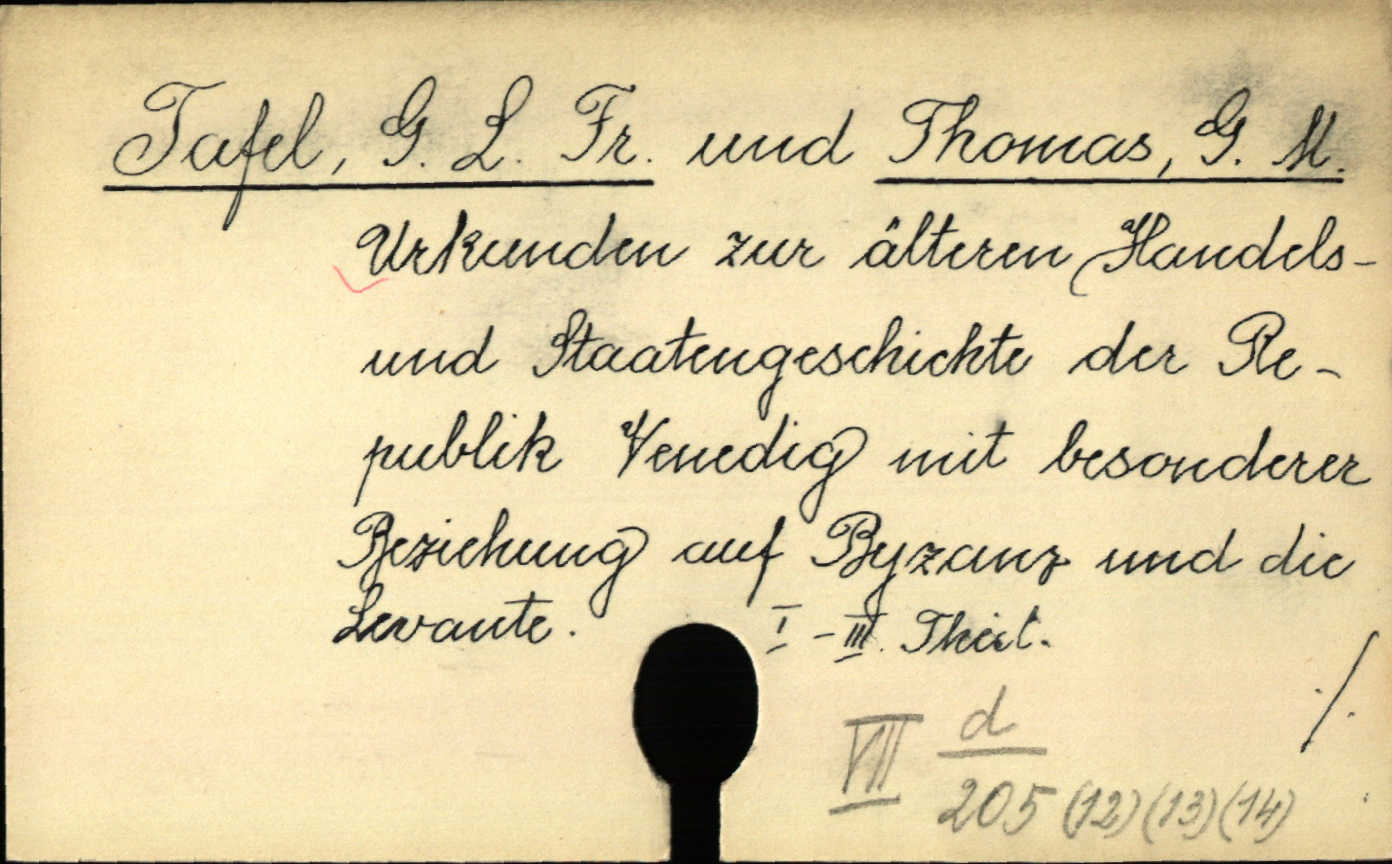 Tafel, G. L. Fr. und Thomas, G. M.
Urkunden zur älteren Handels-
und Staatengeschichte der Re-
publik Venedig mit besonderer
Beziehung auf Byzanz und die
Levante. I - III. Theil.
./.
VII d
205 (12) (13) (14)